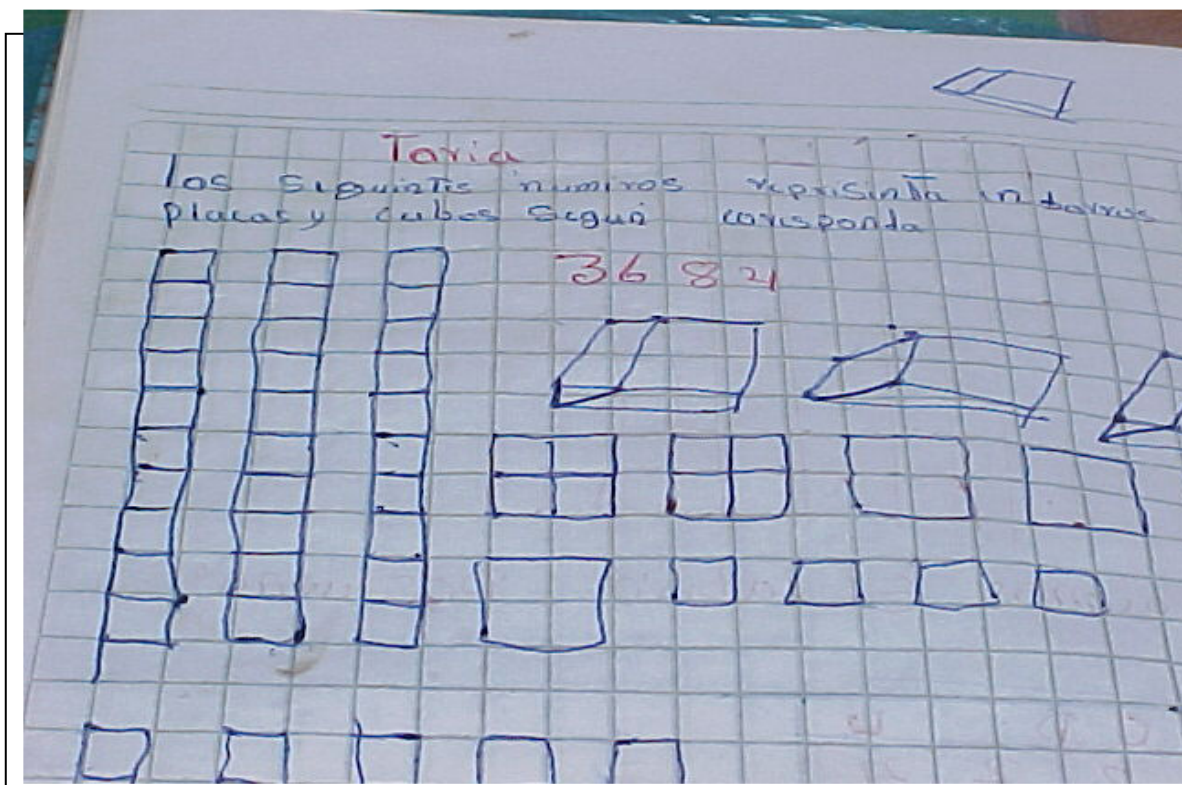 Taria
los siguintis numiros riprisinta in barros
placas y cubos sigun corisponda
36 84